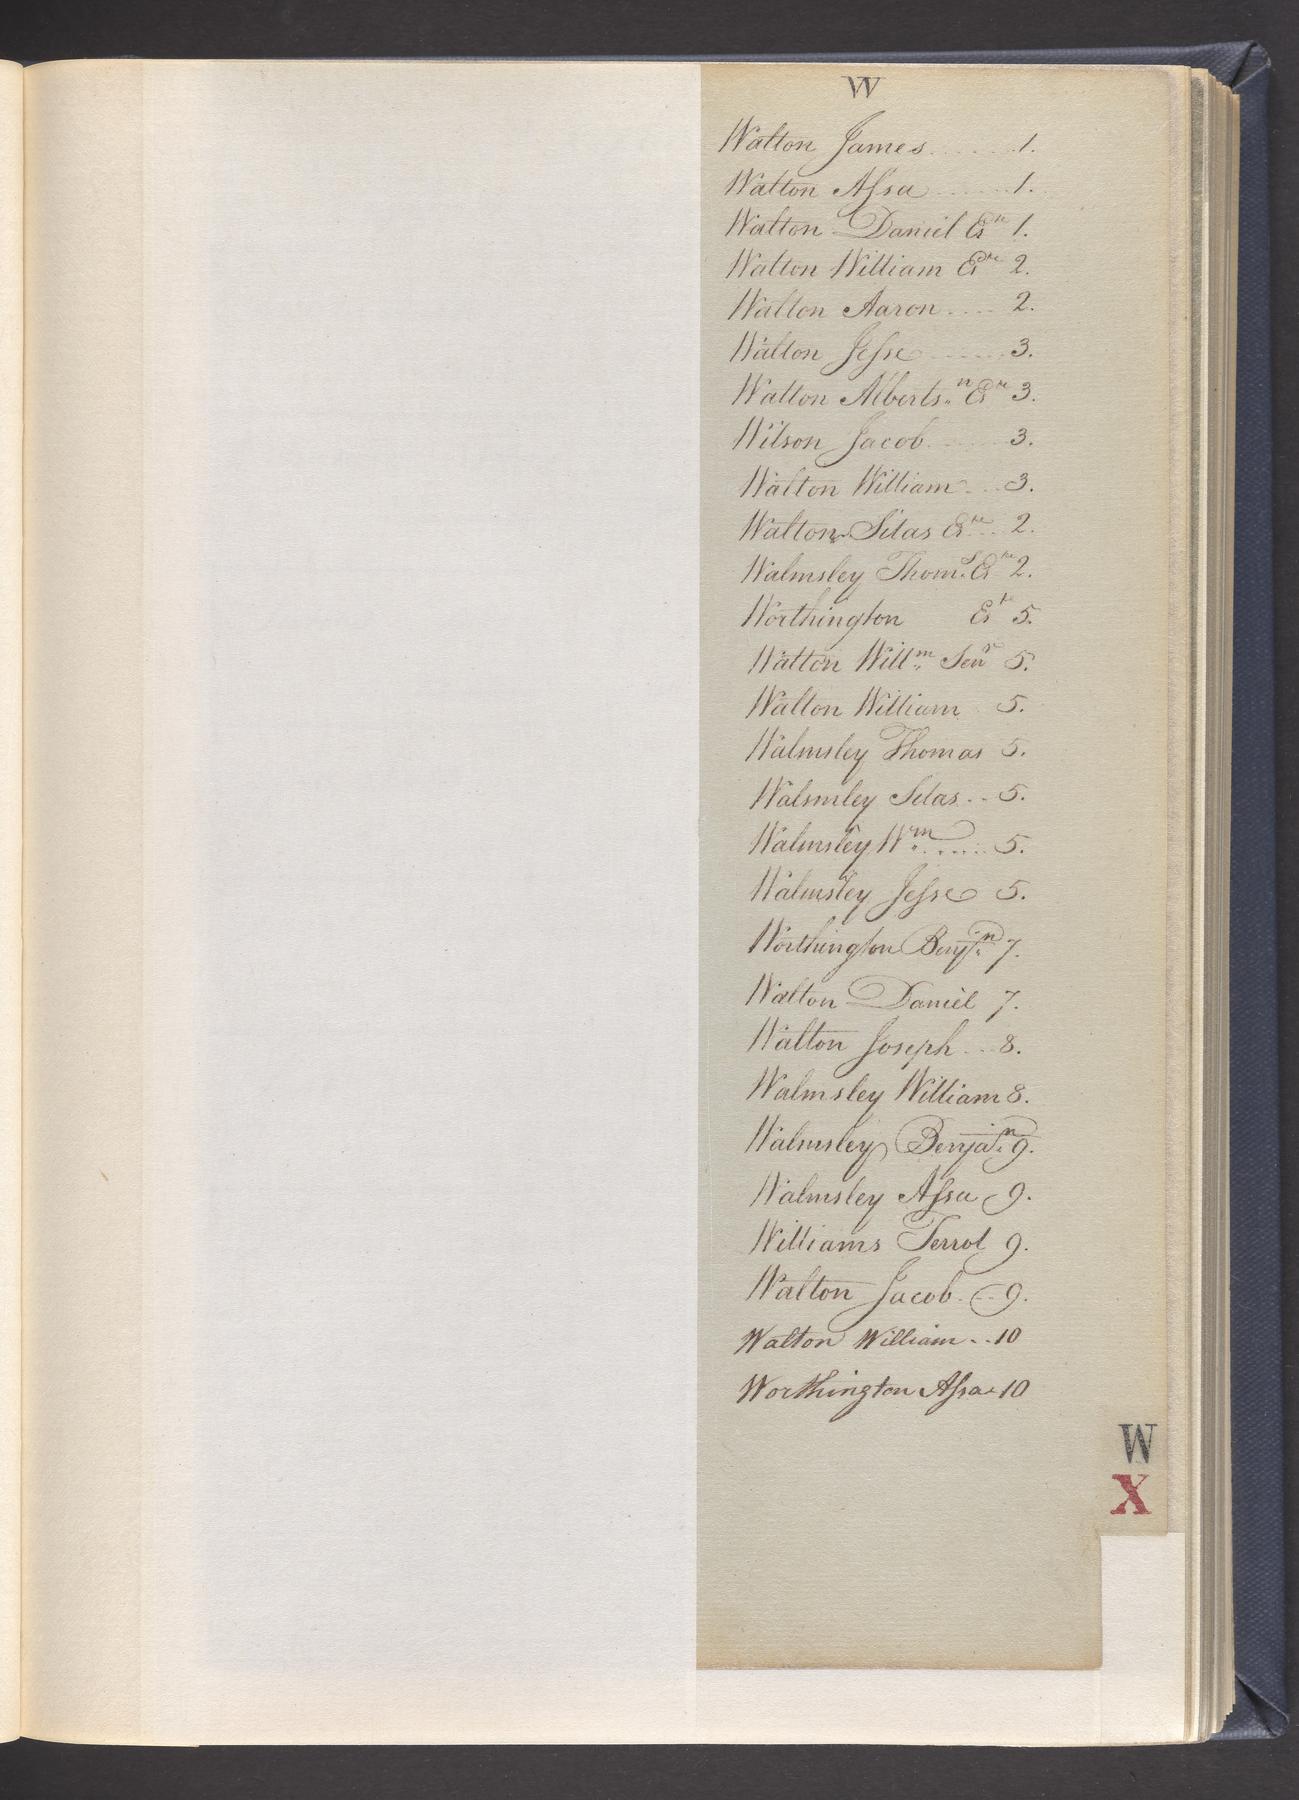 W
Walton James ...... 1.
Walton Assa ...... 1.
Walton Daniel Esᵗᵉ 1.
Walton William Esᵗᵉ 2.
Walton Aaron .... 2.
Walton Jesse ...... 3.
Walton Alberts.ⁿ Esᵗᵉ 3.
Wilson Jacob ...... 3.
Walton William ... 3.
Walton Silas Esᵗᵉ ... 2.
Walmsley Thom.ˢ Esᵗᵉ 2.
Worthington Esᵗ 5.
Walton Willᵐ Senʳ 5.
Walton William 5.
Walmsley Thomas 5.
Walsmley Silas .. 5.
Walmsley Wᵐ ...... 5.
Walmsley Jesse 5.
Worthington Benjⁿ 7.
Walton Daniel 7.
Walton Joseph ... 8.
Walmsley William 8.
Walmsley Benjaⁿ 9.
Walmsley Assa 9.
Williams Terrol 9.
Walton Jacob ... 9.
Walton William .. 10
Worthington Assa . 10
W
X